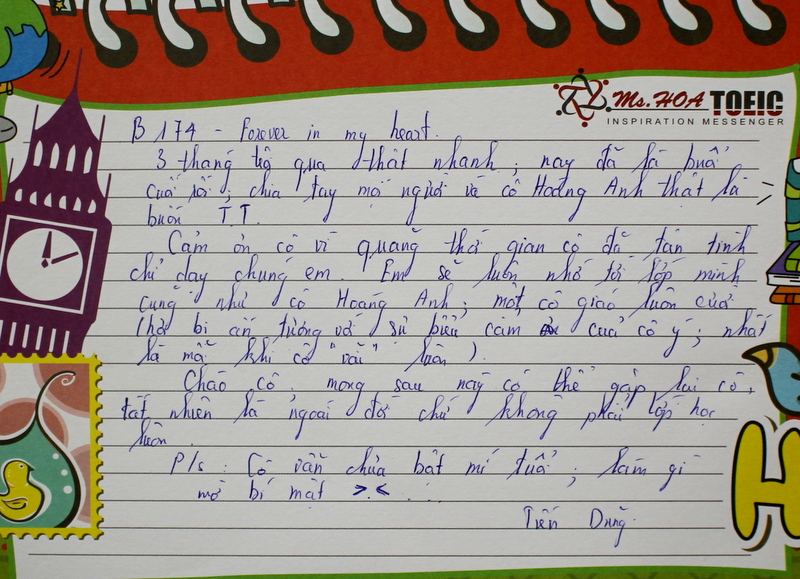 Ms. HOA TOEIC
INSPIRATION MESSENGER
B 174 - Forever in my heart.
3 tháng trôi qua thật nhanh; nay đã là buổi
cuối rồi; chia tay mọi người và cô Hoàng Anh thật là
buồn T.T.
Cảm ơn cô vì quãng thời gian cô đã tận tình
chỉ dạy chúng em. Em sẽ luôn nhớ tới lớp mình
cũng như cô Hoàng Anh; một cô giáo luôn cười
(hơi bị ấn tượng với sự biểu cảm của cô ý; nhất
là mỗi khi cô "vãi" luôn).
Chào cô. mong sau này có thể gặp lại cô,
tất nhiên là ngoài đời chứ không phải lớp học
luôn.
P/s: Cô vẫn chưa bật mí tuổi; làm gì
mờ bí mật >.< ...
Tiến Dũng.
H